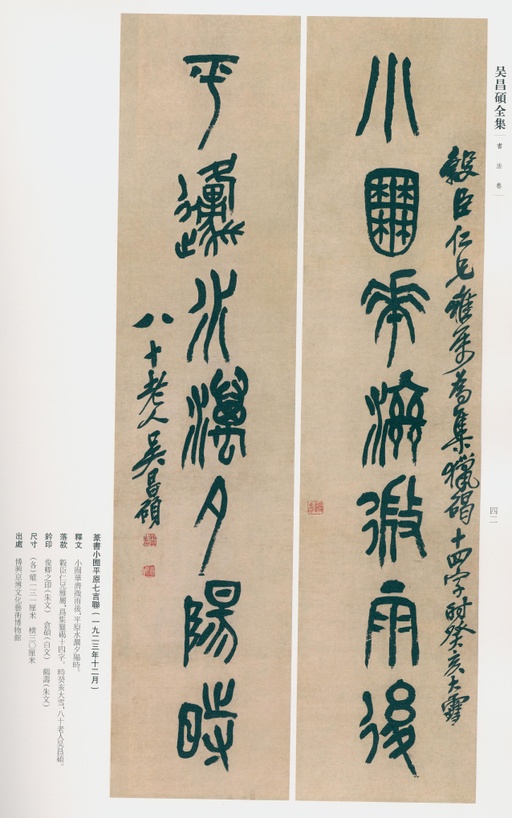 吴昌碩全集
書法卷
穀臣仁兄雅屬為集獵碣十四字時癸亥大雪
小囿華濟微雨後
四二
平邍水瀁夕陽時
八十老人吳昌碩
篆書小囿平原七言聯（一九二三年十二月）
釋文 小囿華濟微雨後，平原水瀁夕陽時。
落款 穀臣仁兄雅屬，爲集獵碣十四字。時癸亥大雪，八十老人吳昌碩。
鈐印 俊卿之印（朱文） 倉碩（白文） 壽（朱文）
尺寸 （各）縱一三一厘米 橫三〇厘米
出處 博興京博文化藝術博物館